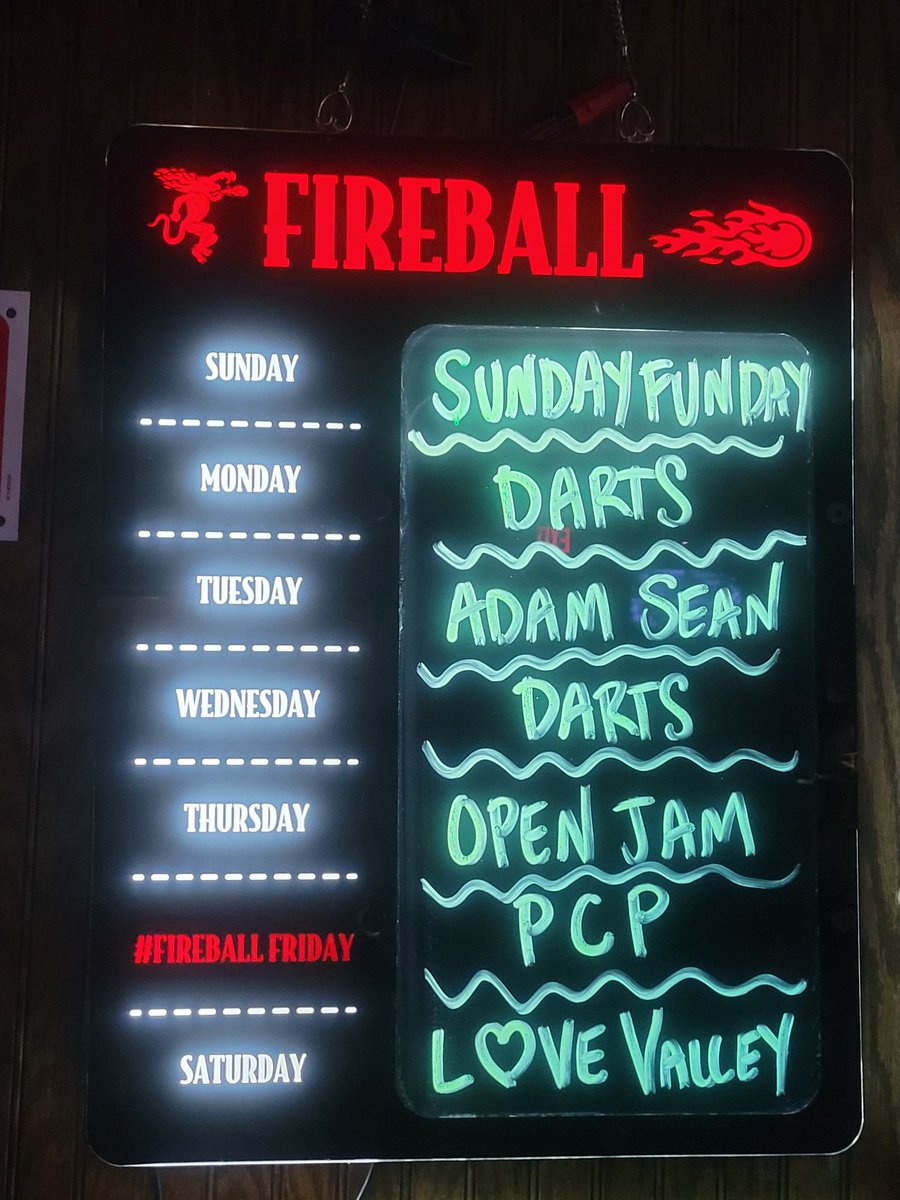 FIREBALL
SUNDAY SUNDAY FUNDAY
MONDAY DARTS
EXIT
TUESDAY ADAM SEAN
WEDNESDAY DARTS
THURSDAY OPEN JAM
#FIREBALL FRIDAY PCP
SATURDAY LOVE VALLEY